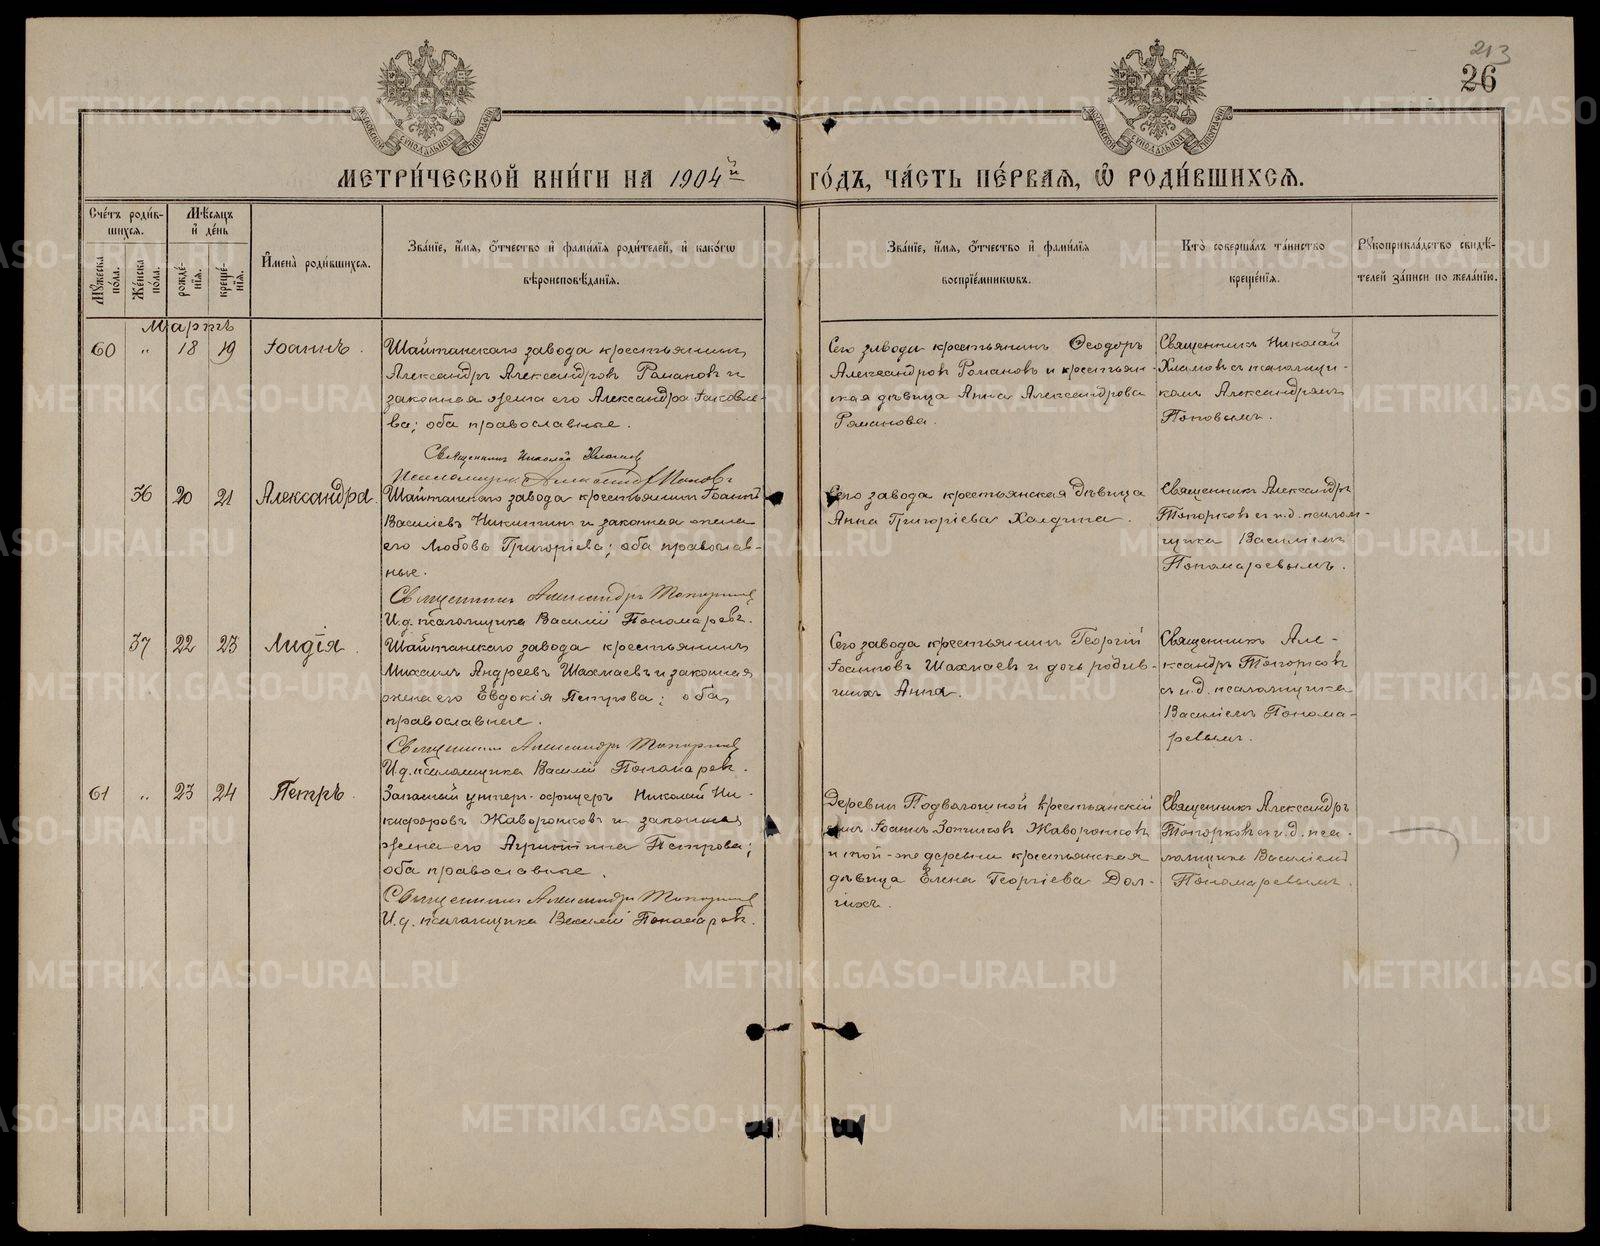 213
26
МОСКОВСКОЙ СѴНОДАЛЬНОЙ ТИПОГРАФІИ
МОСКОВСКОЙ СѴНОДАЛЬНОЙ ТИПОГРАФІИ
МЕТРИ́ЧЕСКОЙ КНИ́ГИ НА 1904й ГО́ДЪ, ЧА́СТЬ ПЕ́РВАѦ, Ѡ РОДИ́ВШИХСѦ.
Сче́тъ роди́в-
шихсѧ.
Мꙋжеска по́ла.
Же́нска по́ла.
Мѣ́сѧцъ и҆ де́нь
рожде́-
нїѧ.
креще́-
нїѧ.
И҆мена̀ роди́вшихсѧ.
Зва́нїе, и҆́мѧ, ѻ҆́тчество и҆ фами́лїѧ роди́телей, и҆ како́гѡ
вѣроисповѣ́данїѧ.
Зва́нїе, и҆́мѧ, ѻ҆́тчество и҆ фами́лїѧ
воспрїе́мникѡвъ.
Кто̀ соверша́лъ та́инство
креще́нїѧ.
Рꙋкоприкла́дство свидѣ́-
телей за́писи по жела́нїю.
Мартъ
60 " 18 19 Іоаннъ.
Шайтанскаго завода крестьянинъ
Александръ Александровъ Романовъ и
законная жена его Александра Іаковле-
ва; оба православные.
Священникъ Николай Хламовъ
Псаломщикъ Александръ Поповъ
Сего завода крестьянинъ Ѳеодоръ
Александровъ Романовъ и крестьян-
ская дѣвица Анна Александрова
Романова.
Священникъ Николай
Хламовъ съ псаломщи-
комъ Александромъ
Поповымъ.
36 20 21 Александра.
Шайтанскаго завода крестьянинъ Іоаннъ
Василіевъ Никитинъ и законная жена
его Любовь Григоріева; оба православ-
ные.
Священникъ Александръ Топорковъ
И.д. псаломщика Василій Пономаревъ.
Сего завода крестьянская дѣвица
Анна Григоріева Халдина.
Священникъ Александръ
Топорковъ съ и.д. псалом-
щика Василіемъ
Пономаревымъ.
37 22 23 Лидія.
Шайтанскаго завода крестьянинъ
Михаилъ Андреевъ Шахмаевъ и законная
жена его Евдокія Петрова; оба
православные.
Священникъ Александръ Топорковъ
И.д. псаломщика Василій Пономаревъ.
Сего завода крестьянинъ Георгій
Іоанновъ Шахмаевъ и дочь родив-
шихъ Анна.
Священникъ Але-
ксандръ Топорковъ
съ и.д. псаломщика
Василіемъ Понома-
ревымъ.
61 " 23 24 Петръ.
Запасный унтеръ-офицеръ Николай Ни-
кифоровъ Жаворонковъ и законная
жена его Агриппина Петрова;
оба православные.
Священникъ Александръ Топорковъ
И.д. псаломщика Василій Пономаревъ.
Деревни Подволошной крестьянскій
сынъ Іоаннъ Зотиковъ Жаворонковъ
и той-же деревни крестьянская
дѣвица Елена Георгіева Дол-
гихъ.
Священникъ Александръ
Топорковъ съ и.д. пса-
ломщика Василіемъ
Пономаревымъ.
METRIKI.GASO-URAL.RU